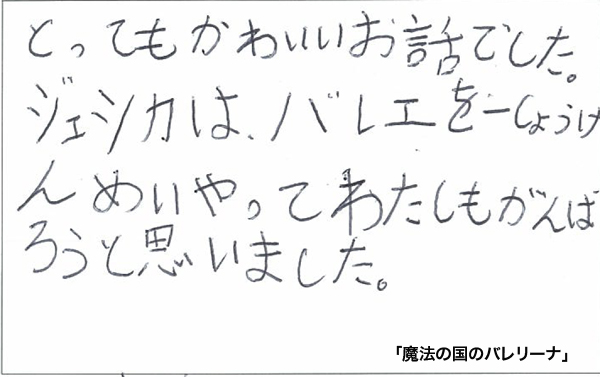 とってもかわいいお話でした。
ジェシカは、バレエを一しょうけ
んめいやってわたしもがんば
ろうと思いました。
「魔法の国のバレリーナ」